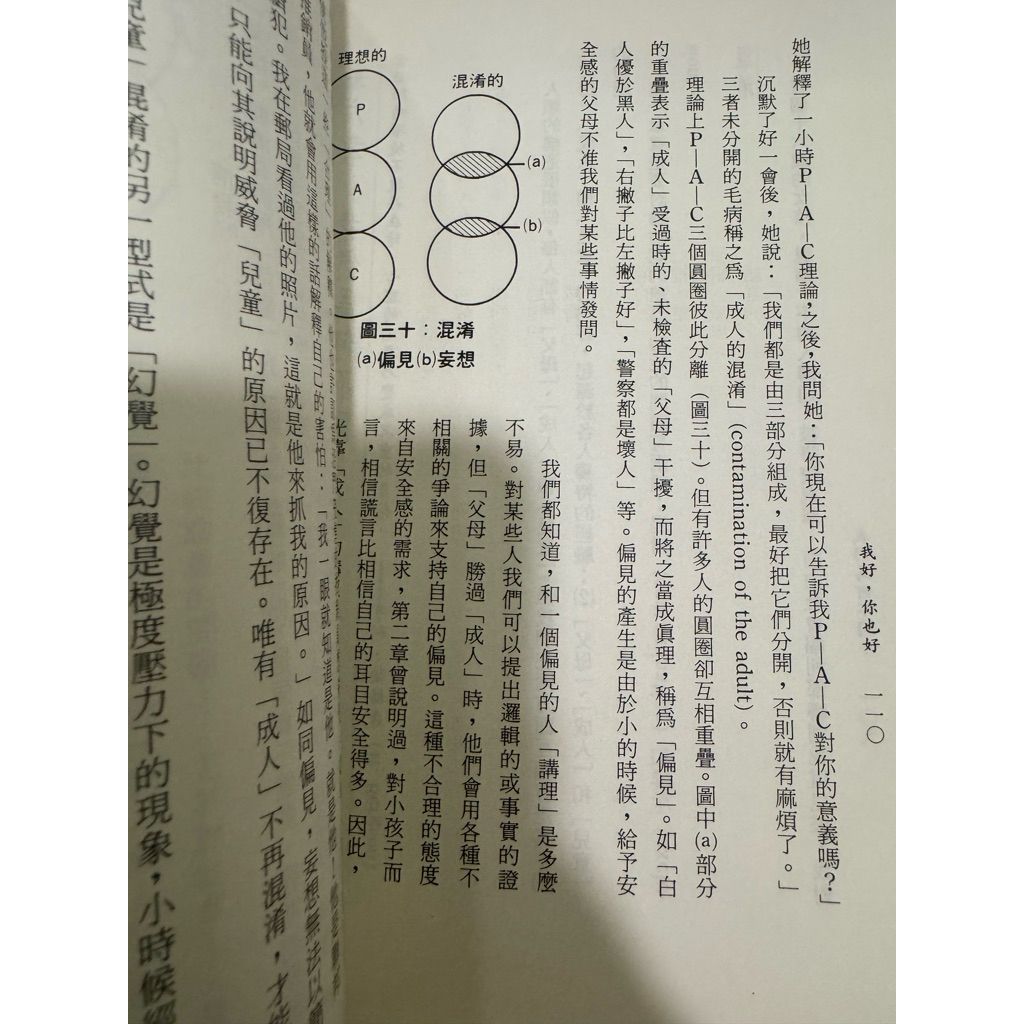 我好，你也好　一一〇
她解釋了一小時P—A—C理論，之後，我問她：「你現在可以告訴我P—A—C對你的意義嗎？」
沉默了好一會後，她說：「我們都是由三部分組成，最好把它們分開，否則就有麻煩了。」
三者未分開的毛病稱之爲「成人的混淆」(contamination of the adult)。
理論上P—A—C三個圓圈彼此分離（圖三十）。但有許多人的圓圈卻互相重疊。圖中(a)部分
的重疊表示「成人」受過時的、未檢查的「父母」干擾，而將之當成眞理，稱爲「偏見」。如「白
人優於黑人」，「右撇子比左撇子好」，「警察都是壞人」等。偏見的產生是由於小的時候，給予安
全感的父母不准我們對某些事情發問。
理想的
P
A
C
混淆的
(a)
(b)
圖三十：混淆
(a)偏見(b)妄想
我們都知道，和一個偏見的人「講理」是多麼
不易。對某些人我們可以提出邏輯的或事實的證
據，但「父母」勝過「成人」時，他們會用各種不
相關的爭論來支持自己的偏見。這種不合理的態度
來自安全感的需求，第二章曾說明過，對小孩子而
言，相信謊言比相信自己的耳目安全得多。因此，
他就會用這樣的話解釋自己的害怕：「我一眼就知道是他。就是他！
犯。我在郵局看過他的照片，這就是他來抓我的原因。」如同偏見，妄想無法以
只能向其說明威脅「兒童」的原因已不復存在。唯有「成人」不再混淆，才能
兒童」混淆的另一型式是「幻覺」。幻覺是極度壓力下的現象，小時候經